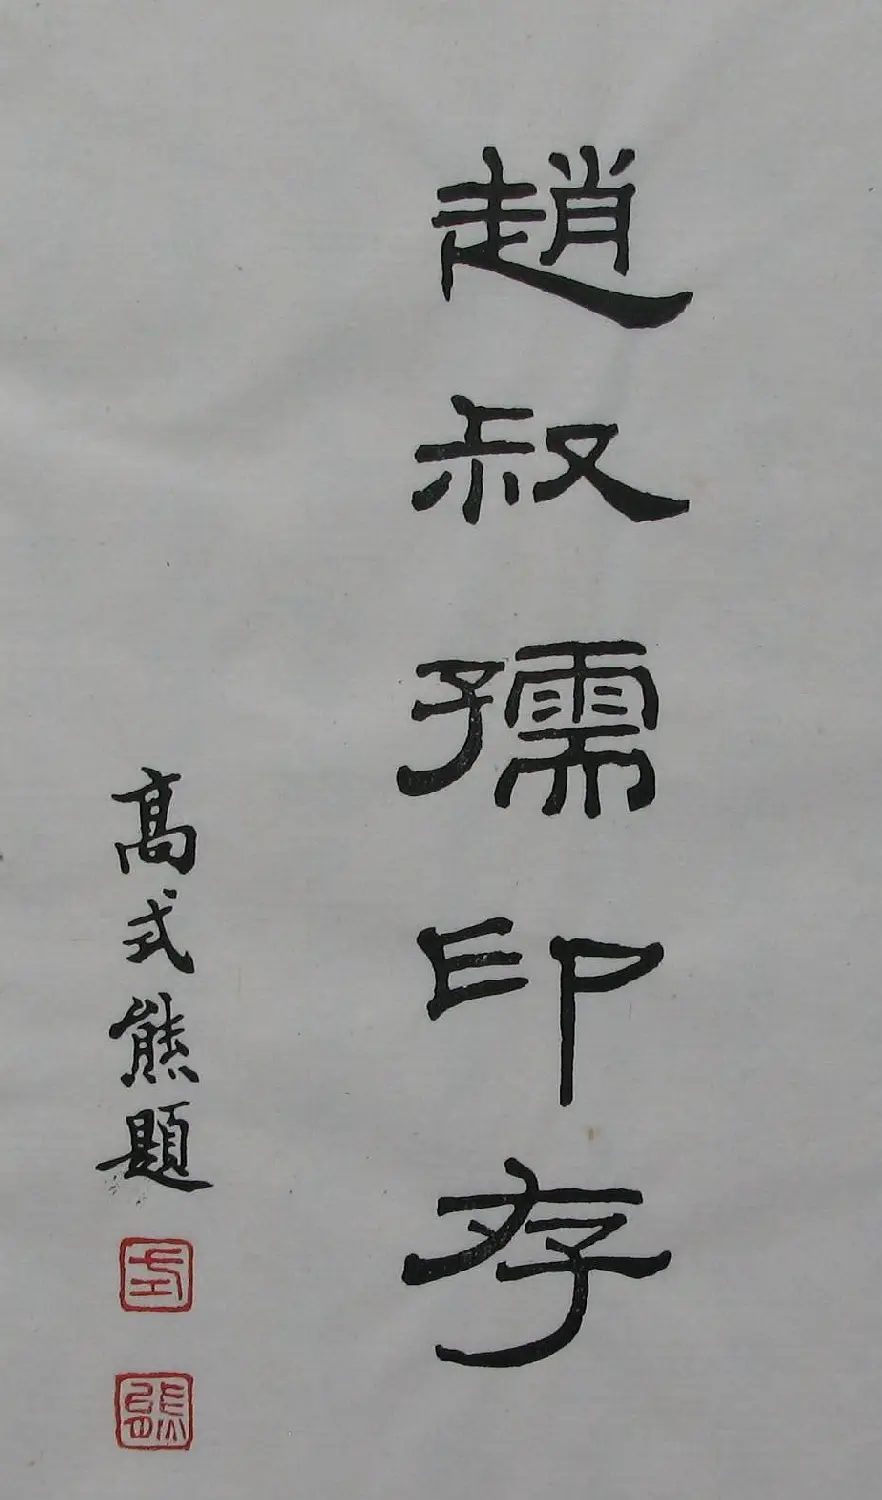 趙叔孺印存
高式熊題
式
熊